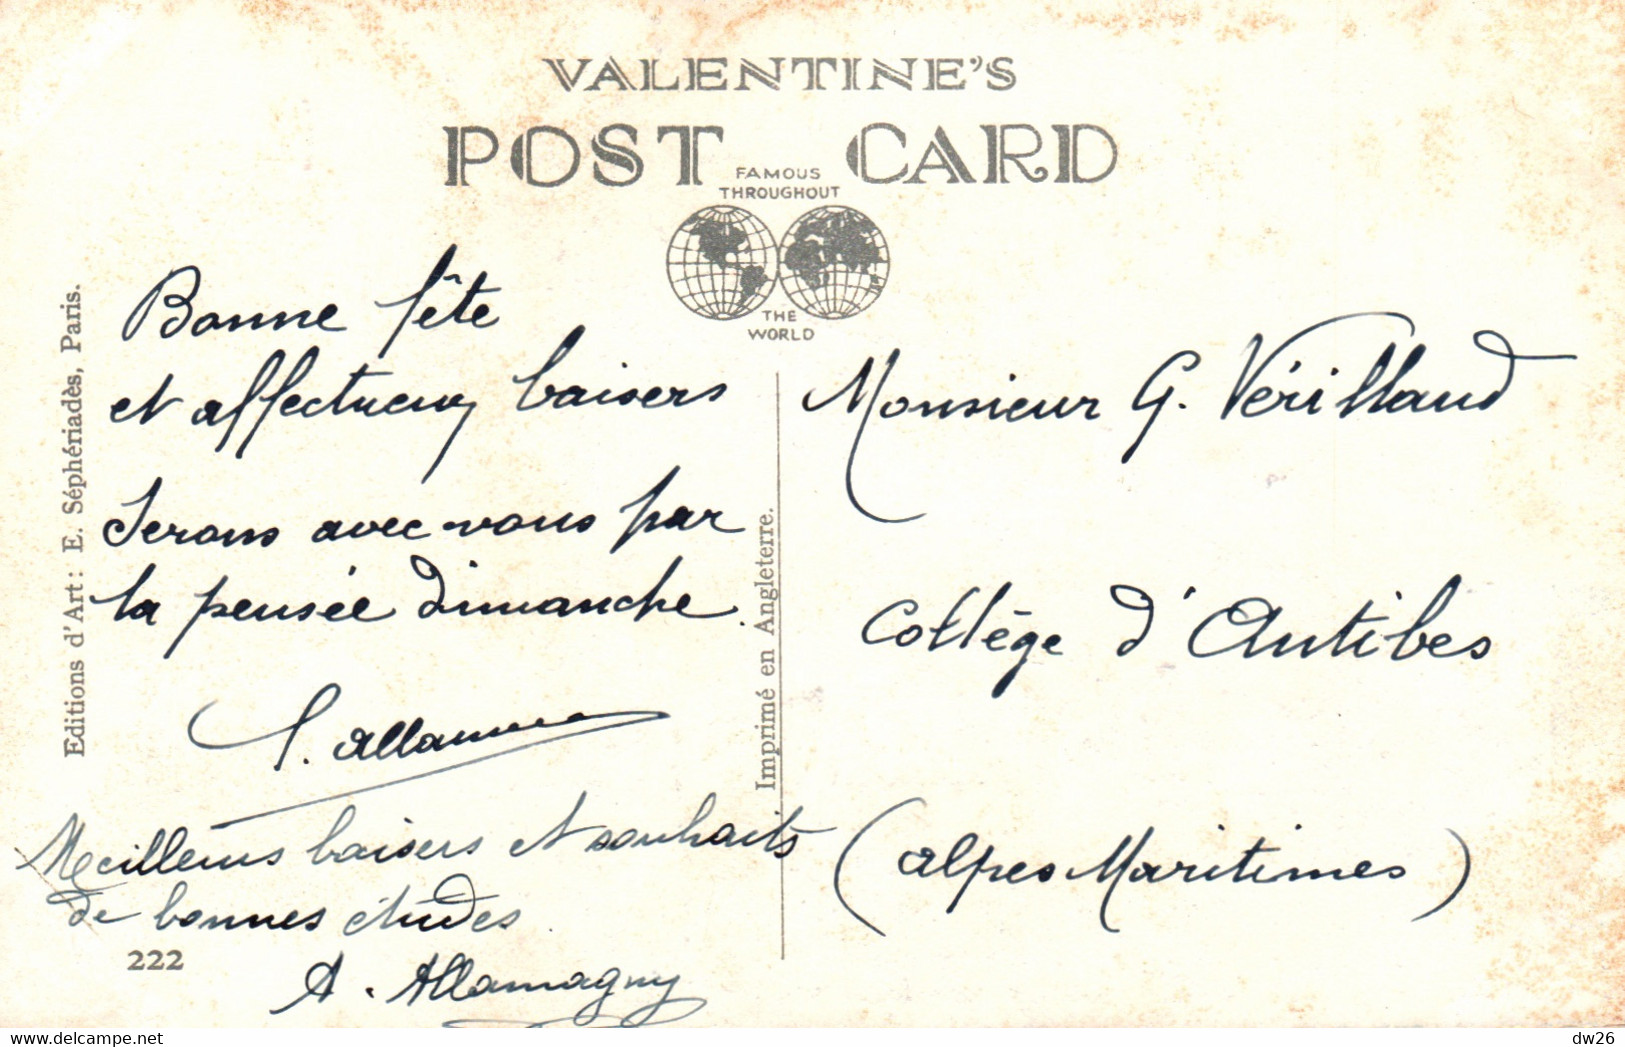 VALENTINE'S
POST CARD
FAMOUS
THROUGHOUT
THE
WORLD
Editions d'Art: E. Séphériadès, Paris.
Bonne fête
et affectueux baisers
Serons avec vous par
la pensée dimanche.
Meilleurs baisers et souhaits
de bonnes études.
A. Allamagny
222
Imprimé en Angleterre.
Monsieur G. Vérilland
Collège d'Antibes
(Alpes Maritimes)
dw26